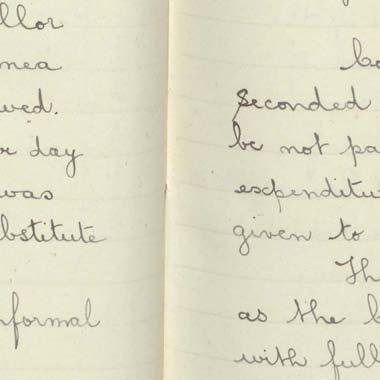 llor
mea
wed.
r day
was
bstitute
nformal
seconded
be not pa
expenditu
given to
Th
as the b
with full